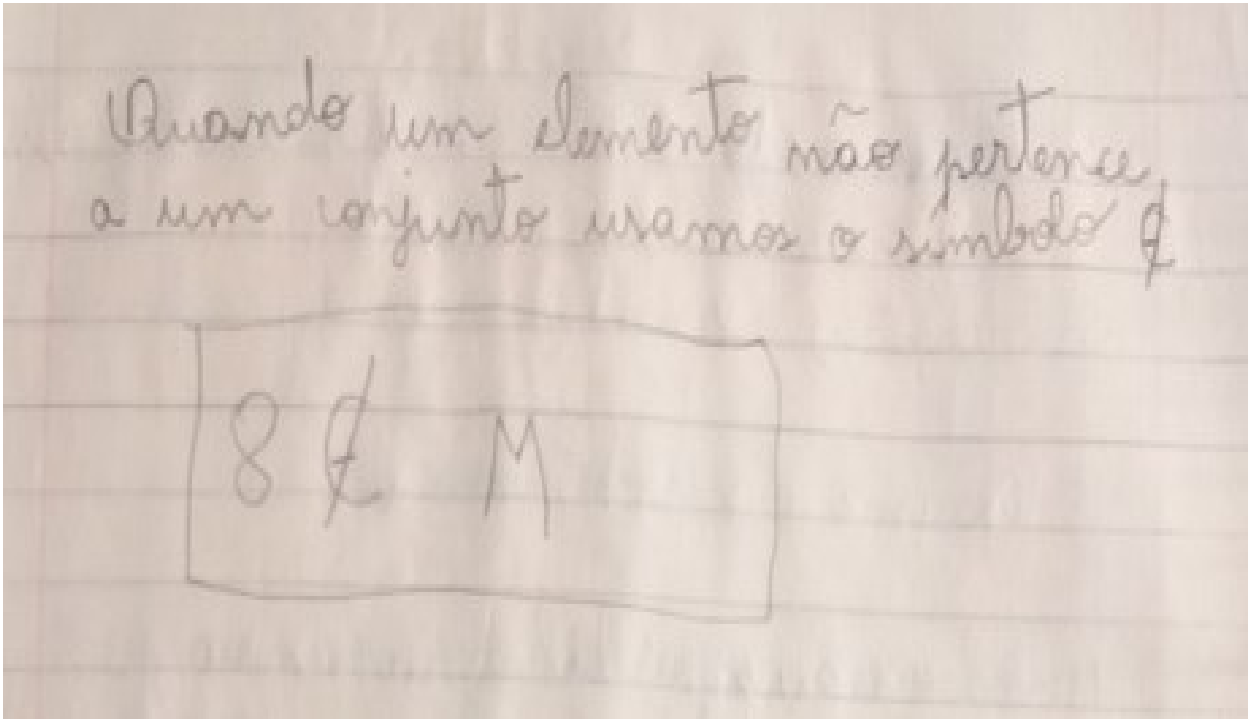 Quando um elemento não pertence
a um conjunto usamos o símbolo ∉
8 ∉ M